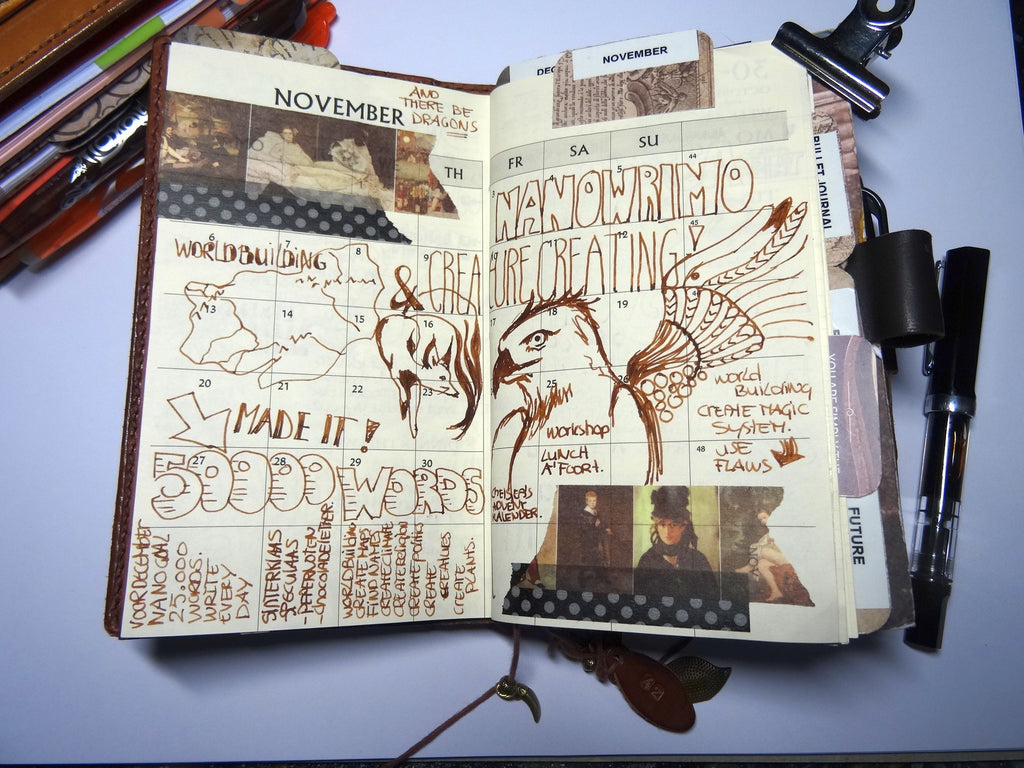 NOVEMBER
AND
THERE BE
DRAGONS
TH
6
7
8
9
WORLDBUILDING
& CREA
13
14
15
16
20
21
22
23
MADE IT!
27
28
29
30
50000 WORDS
NANO GOAL
25.000
WORDS.
WRITE
EVERY
DAY
SINTERKLAAS
CHOCOLADELETTER
WORLDBUILDING
CREATE MAPS
FIND NAMES
CREATE CLIMATE
CREATE RELIGION
CREATE POLITICS
CREATE
CREATE
PLANS.
DEC
NOVEMBER
FR
SA
SU
44
3
4
5
NANOWRIMO
45
10
11
12
TURE CREATING!
17
18
19
25
26
WORKSHOP
LUNCH
A'FOORT.
WORLD
BUILDING
CREATE MAGIC
SYSTEM.
48
USE
FLAWS
ADVENT
KALENDER.
BULLET JOURNAL
FUTURE
42